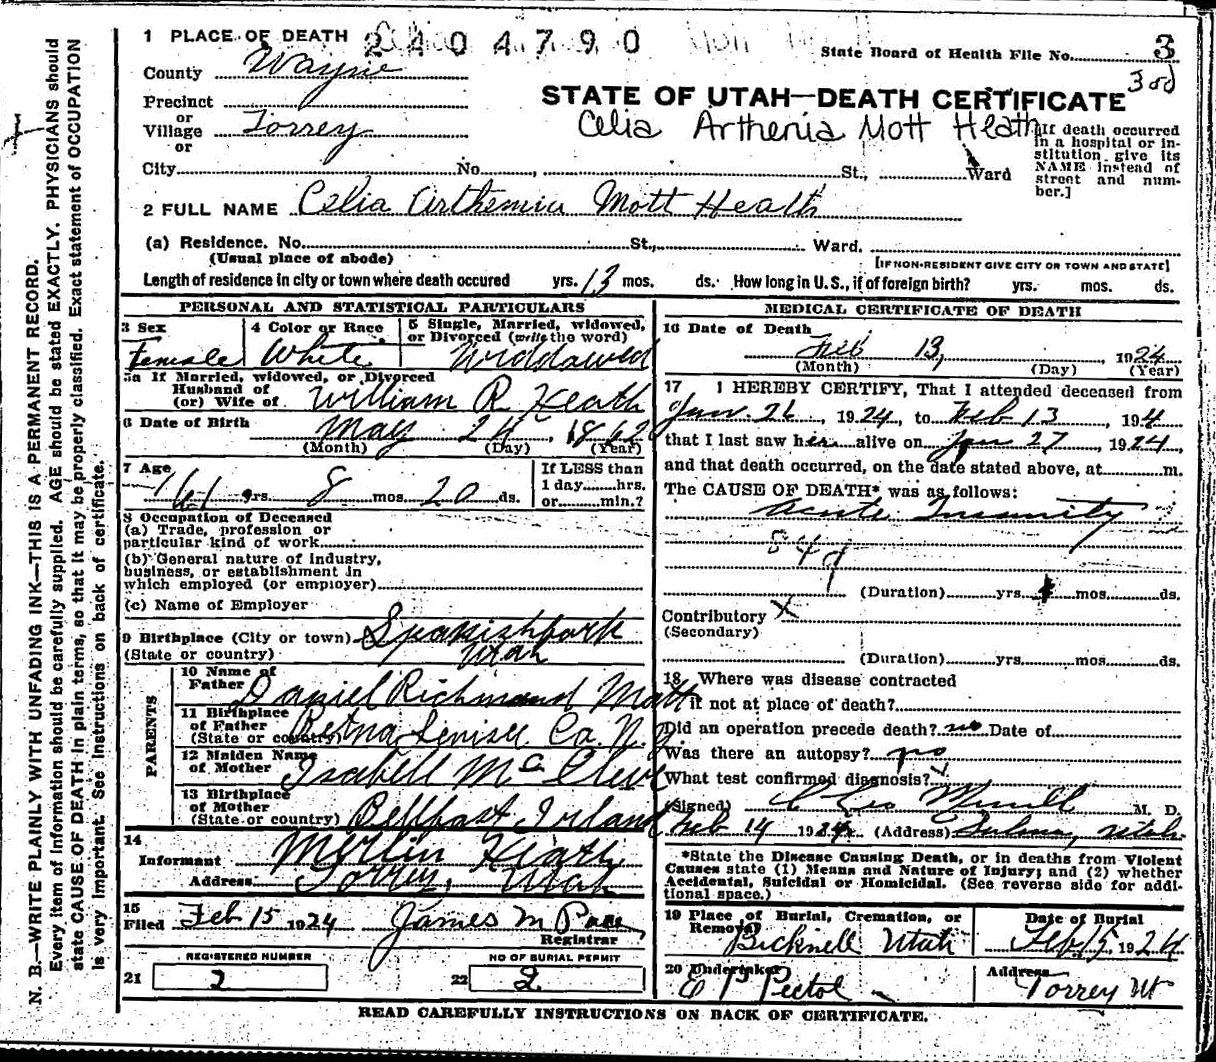 N. B.—WRITE PLAINLY WITH UNFADING INK—THIS IS A PERMANENT RECORD.
Every item of information should be carefully supplied. AGE should be stated EXACTLY. PHYSICIANS should
state CAUSE OF DEATH in plain terms, so that it may be properly classified. Exact statement of OCCUPATION
is very important. See instructions on back of certificate.
1 PLACE OF DEATH 2404790
State Board of Health File No. 3
County Wayne
3rd
Precinct
STATE OF UTAH—DEATH CERTIFICATE
or
Village Torrey
Celia Arthenia Mott Heath
or
[If death occurred
in a hospital or in-
stitution give its
NAME instead of
street and num-
ber.]
City No. St., Ward
2 FULL NAME Celia Arthemia Mott Heath
(a) Residence. No. St., Ward.
(Usual place of abode) [IF NON-RESIDENT GIVE CITY OR TOWN AND STATE]
Length of residence in city or town where death occured yrs. 13 mos. ds. How long in U. S., if of foreign birth? yrs. mos. ds.
PERSONAL AND STATISTICAL PARTICULARS
3 Sex
Female
4 Color or Race
White
5 Single, Married, widowed,
or Divorced (write the word)
Widdowed
5a If Married, widowed, or Divorced
Husband of
(or) Wife of William R Heath
6 Date of Birth May 24, 1862
(Month) (Day) (Year)
7 Age
61 yrs. 8 mos. 20 ds.
If LESS than
1 day hrs.
or min.?
8 Occupation of Deceased
(a) Trade, profession or
particular kind of work
(b) General nature of industry,
business, or establishment in
which employed (or employer)
(c) Name of Employer
9 Birthplace (City or town) Spanishfork
(State or country) Utah
PARENTS
10 Name of
Father Daniel Richmand Mott
11 Birthplace
of Father
(State or country) Co. N. Y.
12 Maiden Name
of Mother Isabell
13 Birthplace
of Mother
(State or country) Bellfast Irland
14
Informant Merlin Heath
Address Torrey, Utah
15
Filed Feb 15 1924 James M Pace
Registrar
REGISTERED NUMBER
21 2
NO OF BURIAL PERMIT
22 2
MEDICAL CERTIFICATE OF DEATH
16 Date of Death
Feb 13, 1924
(Month) (Day) (Year)
17 I HEREBY CERTIFY, That I attended deceased from
Jan. 26, 1924, to Feb 13, 194
that I last saw her alive on Jan 27, 1924,
and that death occurred, on the date stated above, at m.
The CAUSE OF DEATH* was as follows:
Acute Insanity
(Duration) yrs. mos. ds.
Contributory X
(Secondary)
(Duration) yrs. mos. ds.
18 Where was disease contracted
if not at place of death?
Did an operation precede death? no Date of
Was there an autopsy? no
What test confirmed diagnosis?
(Signed) M. D.
Feb 14 1924 (Address) Utah
*State the Disease Causing Death, or in deaths from Violent
Causes state (1) Means and Nature of Injury; and (2) whether
Accidental, Suicidal or Homicidal. (See reverse side for addi-
tional space.)
19 Place of Burial, Cremation, or
Removal
Bicknell Utah
Date of Burial
Feb 15 1924
20 Undertaker
E P Pectol
Address
Torrey Ut
READ CAREFULLY INSTRUCTIONS ON BACK OF CERTIFICATE.